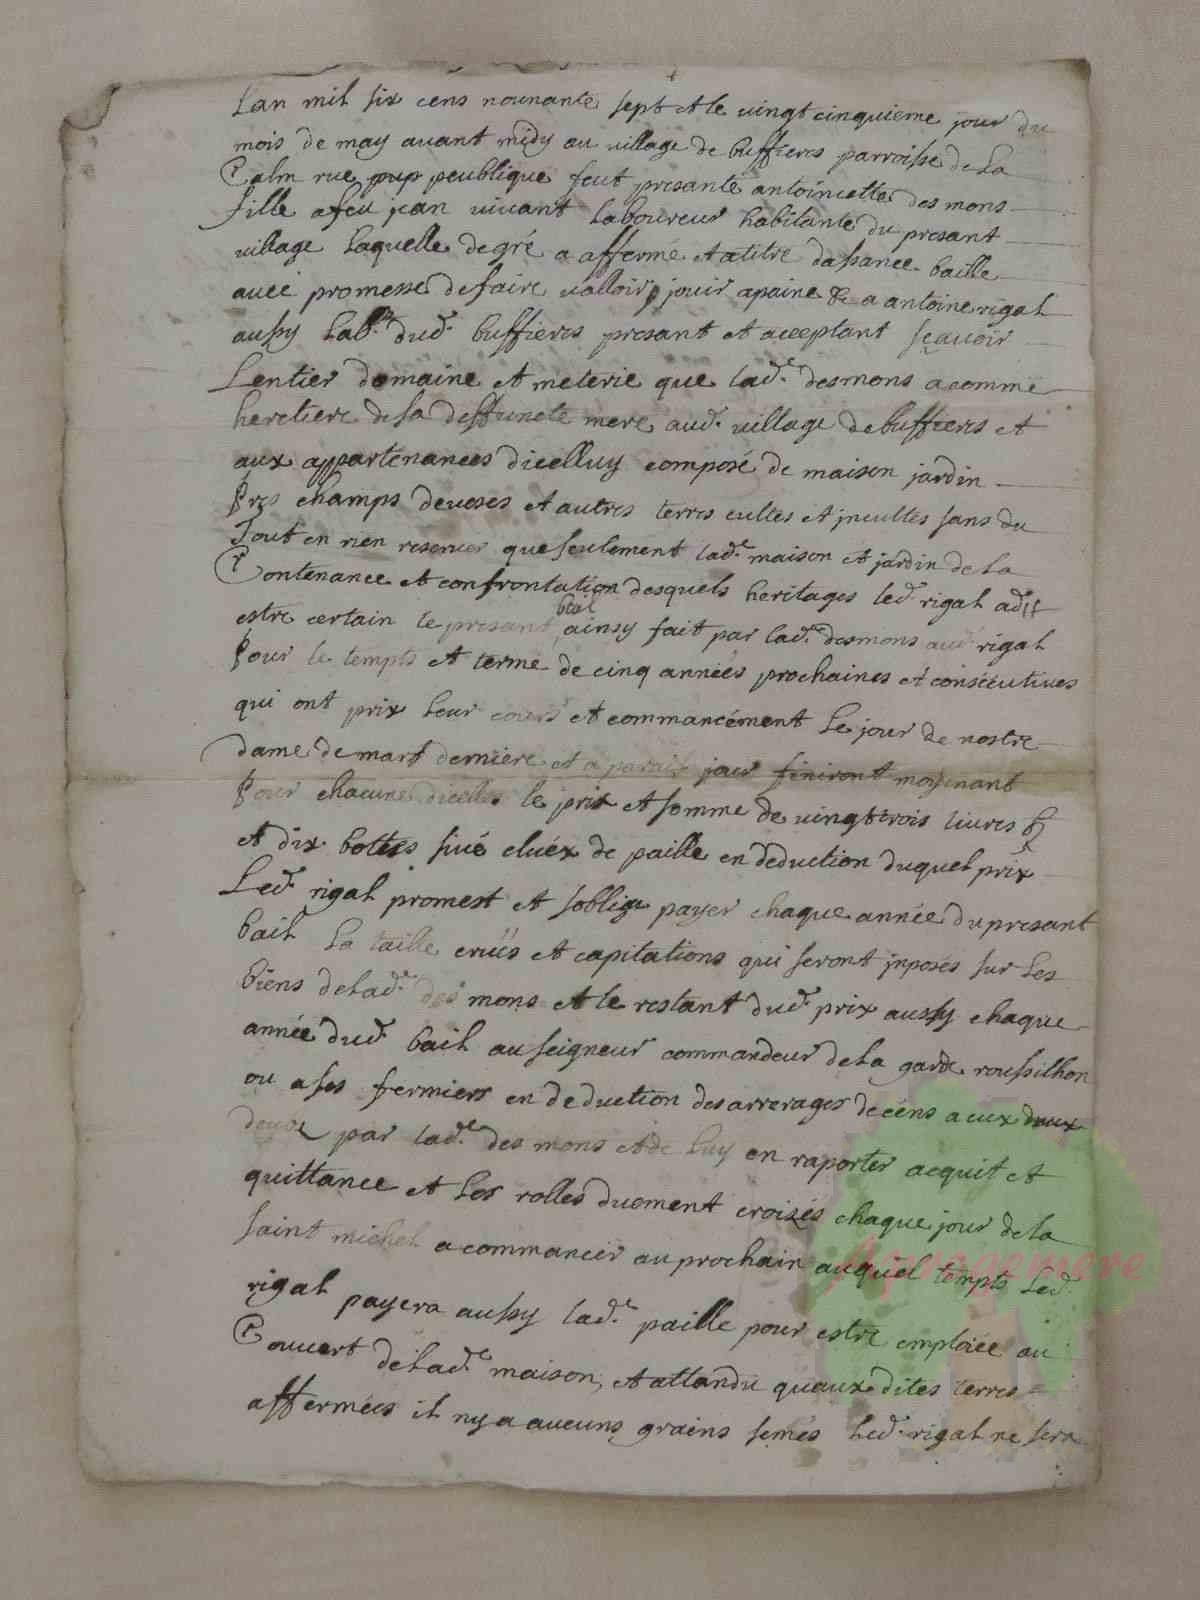 Lan mil six cens nounante sept et le vingt cinquieme jour du
mois de may avant midy au village de buffieres parroisse de La
Calm rue pup peublique feut presante antoinette des mons
fille a feu jean vivant Laboureur habitante du presant
village Laquelle de gré a affermé et a titre dassance baille
avec promesse de faire valloir jouir a paine &c a antoine rigal
aussy Labr. dud. buffieres presant et acceptant sçavoir
Lentier domaine et meterie que lade. desmons a comme
heretiere de sa deffuncte mere aud. village de buffieres et
aux appartenances dicelluy composé de maison jardin
Pres champs deveses et autres terres cultes et incultes sans du
Tout en rien reserver que seulement lade. maison et jardin de la
Contenance et confrontation desquels heritages led. rigal a dit
estre certain le presant bail ainsy fait par lade. desmons aud rigal
Pour le tempts et terme de cinq années prochaines et consécutives
qui ont prix leur cours et commancement Le jour de nostre
dame de mars derniere et a pareil jour finiront moyenant
Pour chacune dicelles le prix et somme de vingt trois livres
et dix botes sivé cluéx de paille en deduction duquel prix
Led. rigal promest et soblige payer chaque année du presant
bail La taille crues et capitations qui seront inposés sur Les
biens de Lade. des mons et le restant dud. prix aussy chaque
année dud. bail au seigneur commandeur de La garde roussilhon
ou a ses fermiers en deduction des arrerages de cens a eux deux
deube par lade. des mons et de Luy en raporter acquit et
quittance et Les rolles duement croisés chaque jour de la
saint michel a commancer au prochain auquel tempts Led.
rigal payera aussy lade. paille pour estre emploiée au
Couvert de Lade. maison, et attandu quaux dites terres
affermées il ny a aucuns grains semés Led. rigal ne sera
Aquagemere